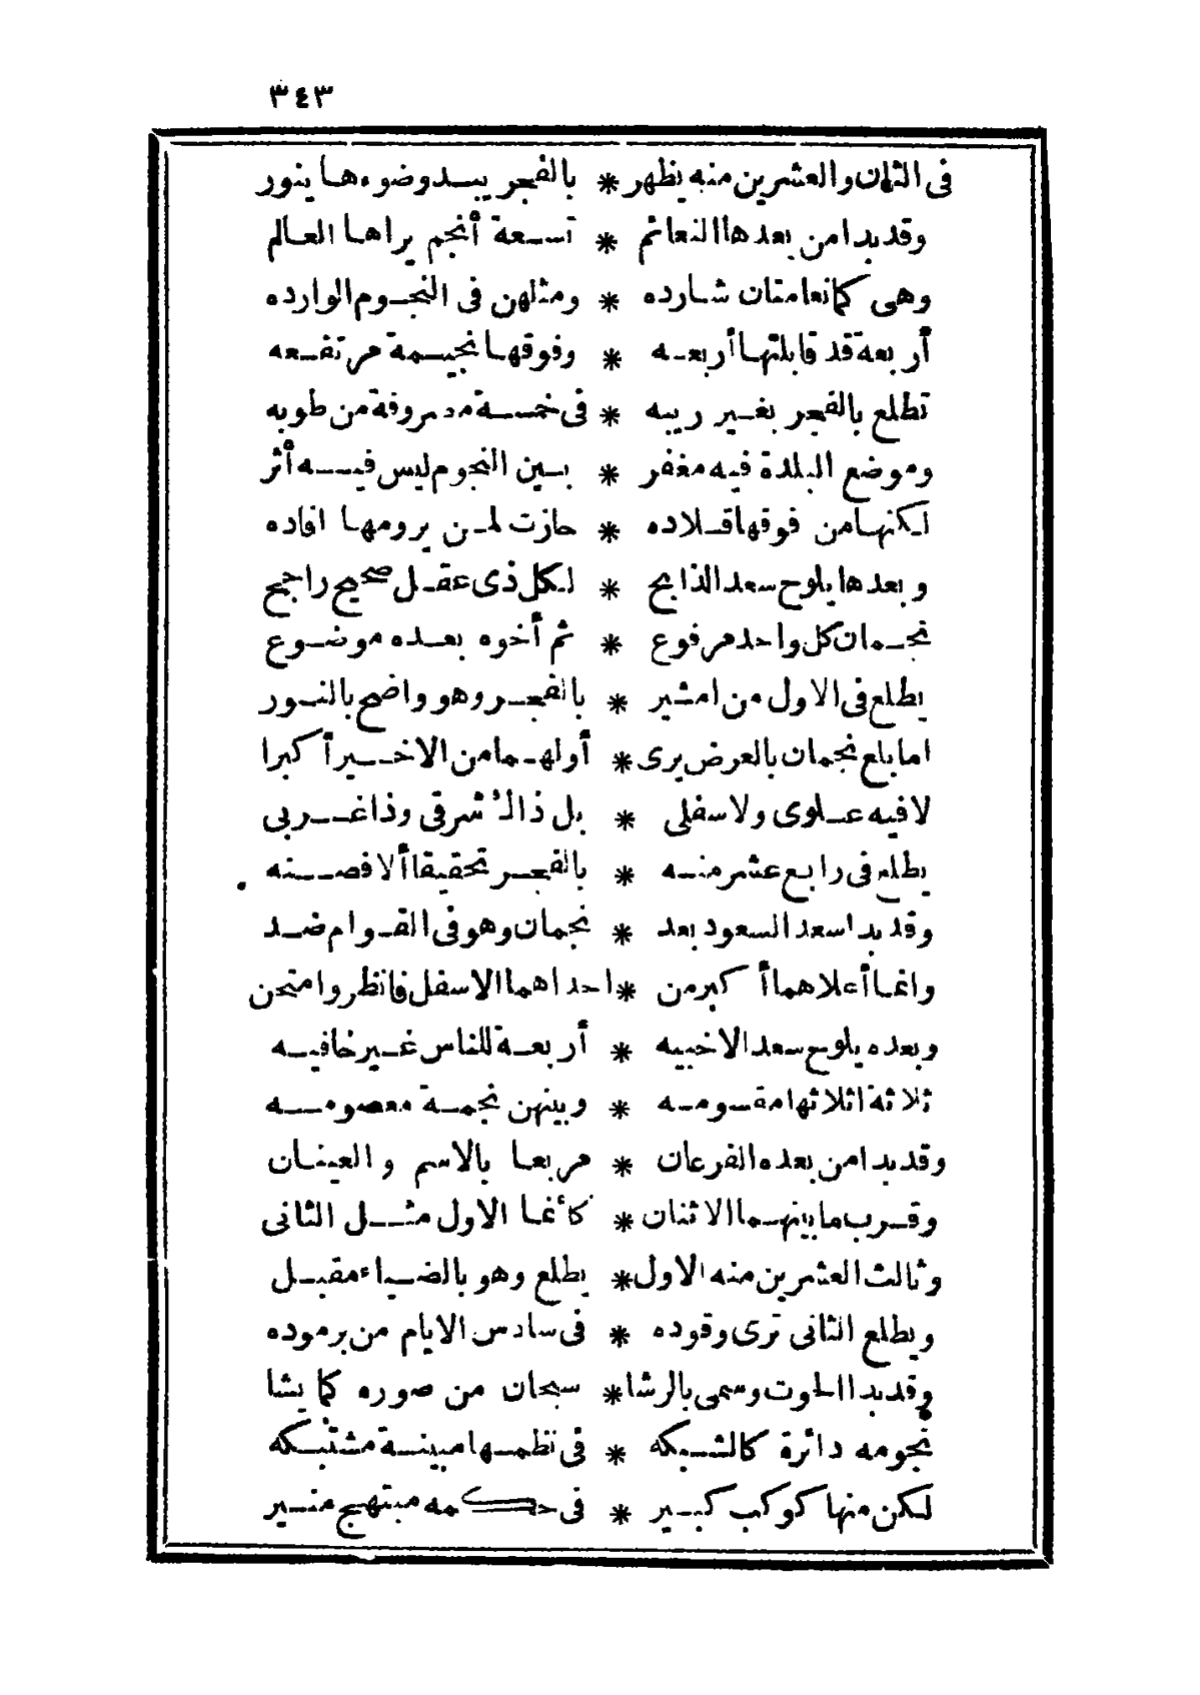 ٣٤٣
فى الثمان والعشرين منه يظهر * بالفجر يبدو ضوءها ينور
وقد بدا من بعدها النعائم * تسعة أنجم يراها العالم
وهى كانعامتان شارده * ومثلهن فى النجوم الوارده
أربعة قد قابلتها أربعه * وفوقها نجيمة مرتفعه
تطلع بالفجر بغير ريبه * فى خمسة معروفة من طوبه
وموضع البلدة فيه مغفر * بين النجوم ليس فيه أثر
لكنها من فوقها قلاده * حازت لمن يرومها افاده
وبعدها يلوح سعد الذابح * لكل ذى عقل صحيح راجح
نجمان كل واحد مرفوع * ثم أخوه بعده موضوع
يطلع فى الاول من امشير * بالفجر وهو واضح بالنور
اما بلع نجمان بالعرض يرى * أولهما من الاخير أكبرا
لا فيه علوى ولا سفلى * بل ذاك شرقى وذا غربى
يطلع فى رابع عشر منه * بالفجر تحقيقا ألا فصنه
وقد بدا سعد السعود بعد * نجمان وهو فى القوام ضد
وانما أعلاهما أكبر من * احداهما الاسفل فانظروا متحن
وبعده يلوح سعد الاخبيه * أربعة للناس غير خافيه
ثلاثة اثلاثها مقسومه * وبينهن نجمة معصومه
وقد بدا من بعده الفرعان * مربعا بالاسم والعينان
وقرب ما بينهما الاثنان * كأنما الاول مثل الثانى
وثالث العشرين منه الاول * يطلع وهو بالضياء مقبل
ويطلع الثانى ترى وقوده * فى سادس الايام من برموده
وقد بدا الحوت وسمى بالرشا * سبحان من صوره كما يشا
نجومه دائرة كالشبكه * فى نظمها مبينة مشتبكه
لكن منها كوكب كبير * فى حكمه مبتهج منير